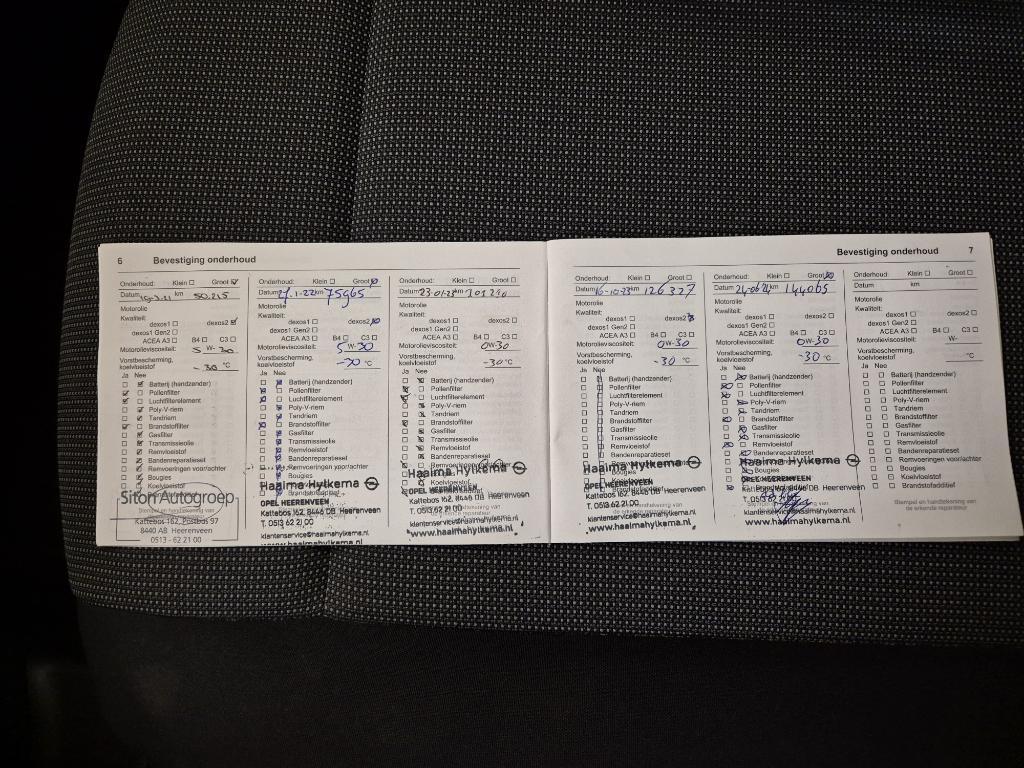 6 Bevestiging onderhoud
Onderhoud: Klein ☐ Groot ☑
Datum 19-3-21 km 50.215
Motorolie
Kwaliteit:
dexos1 ☐ dexos2 ☑
dexos1 Gen2 ☐
ACEA A3 ☐ B4 ☐ C3 ☐
Motorolieviscositeit:
5 W- 30
Vorstbescherming,
koelvloeistof - 30 °C
Ja Nee
Batterij (handzender)
Pollenfilter
Luchtfilterelement
Poly-V-riem
Tandriem
Brandstoffilter
Gasfilter
Transmissieolie
Remvloeistof
Bandenreparatieset
Remvoeringen voor/achter
Bougies
Koelvloeistof
Siton Autogroep
Kattebos 162, Postbus 97
8440 AB Heerenveen
0513 - 62 21 00
Klein ☐ Groot ☒
Datum 21-1-22 km 75965
Motorolie
Kwaliteit:
dexos1 ☐ dexos2 ☒
dexos1 Gen2 ☐
ACEA A3 ☐ B4 ☐ C3 ☐
Motorolieviscositeit:
5 W-30
Vorstbescherming,
koelvloeistof °C
Ja Nee
Batterij (handzender)
Pollenfilter
Luchtfilterelement
Poly-V-riem
Tandriem
Brandstoffilter
Gasfilter
Transmissieolie
Remvloeistof
Bandenreparatieset
Remvoeringen voor/achter
Haaima Hylkema
OPEL HEERENVEEN
Kattebos 162, 8446 DB Heerenveen
T. 0513 62 21 00
klantenservice@haaimahylkema.nl
www.haaimahylkema.nl
Onderhoud: Klein ☐ Groot ☐
Datum 23-01-23 km
Motorolie
Kwaliteit:
dexos1 ☐ dexos2 ☐
dexos1 Gen2 ☐
ACEA A3 ☐ B4 ☐ C3 ☐
Motorolieviscositeit:
0W-30
Vorstbescherming,
koelvloeistof -30 °C
Ja Nee
Batterij (handzender)
Pollenfilter
Luchtfilterelement
Poly-V-riem
Tandriem
Brandstoffilter
Gasfilter
Transmissieolie
Remvloeistof
Bandenreparatieset
Haaima Hylkema
Koelvloeistof
OPEL HEERENVEEN
Kattebos 162, 8446 DB Heerenveen
T. 0513 62 21 00
klantenservice@haaimahylkema.nl
www.haaimahylkema.nl
Bevestiging onderhoud 7
Onderhoud: Klein ☐ Groot ☐
Datum 16-10-23 km 126327
Motorolie
Kwaliteit:
dexos1 ☐ dexos2 ☒
dexos1 Gen2 ☐
ACEA A3 ☐ B4 ☐ C3 ☐
Motorolieviscositeit:
0W-30
Vorstbescherming,
koelvloeistof -30 °C
Ja Nee
Batterij (handzender)
Pollenfilter
Luchtfilterelement
Poly-V-riem
Tandriem
Brandstoffilter
Gasfilter
Transmissieolie
Remvloeistof
Bandenreparatieset
Haaima Hylkema
Bougies
OPEL HEERENVEEN
Kattebos 162, 8446 DB Heerenveen
T. 0513 62 21 00
klantenservice@haaimahylkema.nl
www.haaimahylkema.nl
Onderhoud: Klein ☐ Groot ☒
Datum 24-06-24 km 144065
Motorolie
Kwaliteit:
dexos1 ☐ dexos2 ☐
dexos1 Gen2 ☐
ACEA A3 ☐ B4 ☐ C3 ☐
Motorolieviscositeit:
0W-30
Vorstbescherming,
koelvloeistof -30 °C
Ja Nee
Batterij (handzender)
Pollenfilter
Luchtfilterelement
Poly-V-riem
Tandriem
Brandstoffilter
Gasfilter
Transmissieolie
Remvloeistof
Bandenreparatieset
Haaima Hylkema
Bougies
OPEL HEERENVEEN
Kattebos 162, 8446 DB Heerenveen
klantenservice@haaimahylkema.nl
www.haaimahylkema.nl
Onderhoud: Klein ☐ Groot ☐
Datum km
Motorolie
Kwaliteit:
dexos1 ☐ dexos2 ☐
dexos1 Gen2 ☐
ACEA A3 ☐ B4 ☐ C3 ☐
Motorolieviscositeit:
W-
Vorstbescherming,
koelvloeistof °C
Ja Nee
Batterij (handzender)
Pollenfilter
Luchtfilterelement
Poly-V-riem
Tandriem
Brandstoffilter
Gasfilter
Transmissieolie
Remvloeistof
Bandenreparatieset
Remvoeringen voor/achter
Bougies
Koelvloeistof
Brandstofadditief
Stempel en handtekening van
de erkende reparateur